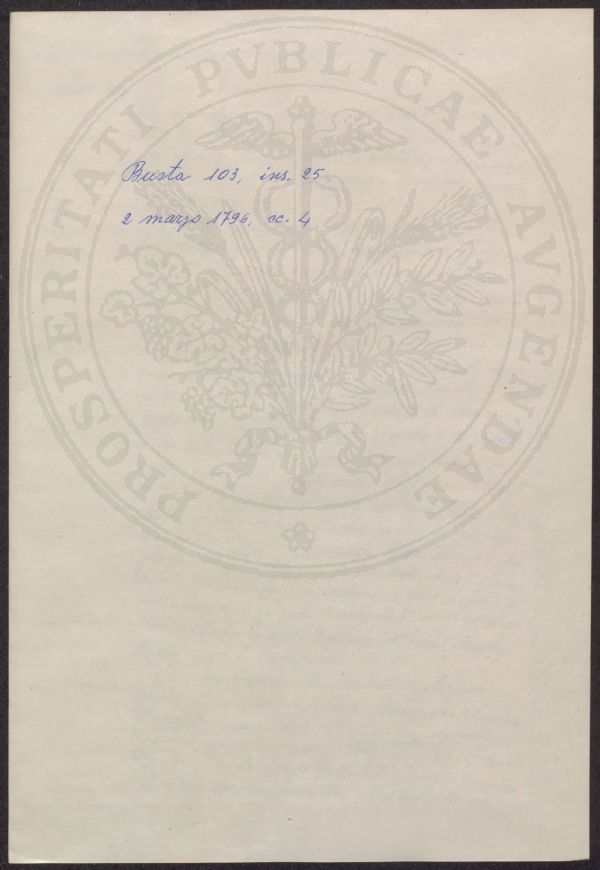 PROSPERITATI PVBLICAE AVGENDAE
Busta 103, ins. 25
2 marzo 1796, cc. 4